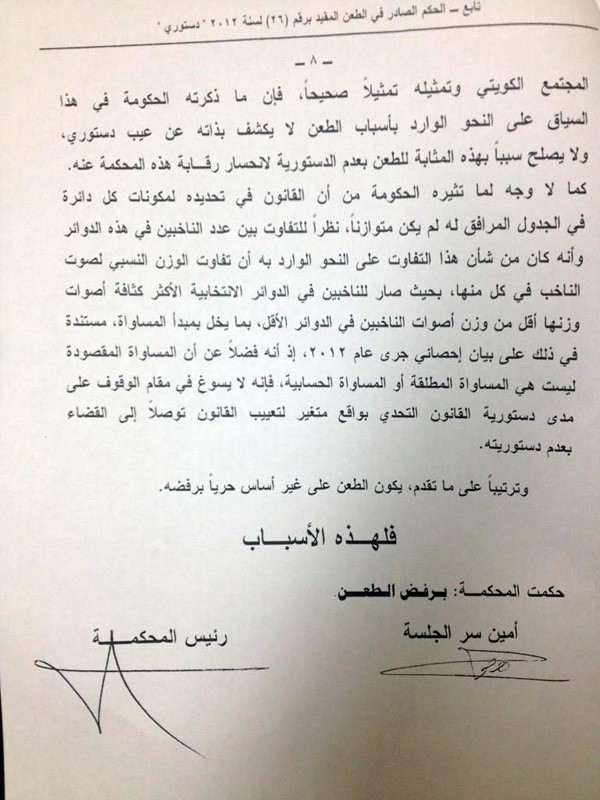 تابع ــ الحكم الصادر في الطعن المقيد برقم (٢٦) لسنة ٢٠١٢ " دستوري "
ــ ٨ ــ
المجتمع الكويتي وتمثيله تمثيلاً صحيحاً، فإن ما ذكرته الحكومة في هذا
السياق على النحو الوارد بأسباب الطعن لا يكشف بذاته عن عيب دستوري،
ولا يصلح سبباً بهذه المثابة للطعن بعدم الدستورية لانحسار رقابة هذه المحكمة عنه.
كما لا وجه لما تثيره الحكومة من أن القانون في تحديده لمكونات كل دائرة
في الجدول المرافق له لم يكن متوازناً، نظراً للتفاوت بين عدد الناخبين في هذه الدوائر
وأنه كان من شأن هذا التفاوت على النحو الوارد به أن تفاوت الوزن النسبي لصوت
الناخب في كل منها، بحيث صار للناخبين في الدوائر الانتخابية الأكثر كثافة أصوات
وزنها أقل من وزن أصوات الناخبين في الدوائر الأقل، بما يخل بمبدأ المساواة، مستندة
في ذلك على بيان إحصائي جرى عام ٢٠١٢، إذ أنه فضلاً عن أن المساواة المقصودة
ليست هي المساواة المطلقة أو المساواة الحسابية، فإنه لا يسوغ في مقام الوقوف على
مدى دستورية القانون التحدي بواقع متغير لتعييب القانون توصلاً إلى القضاء
بعدم دستوريته.
وترتيباً على ما تقدم، يكون الطعن على غير أساس حرياً برفضه.
فلهــذه الأسبــاب
حكمت المحكمة: برفض الطعــن.
أمين سر الجلسة
رئيس المحكمــــة